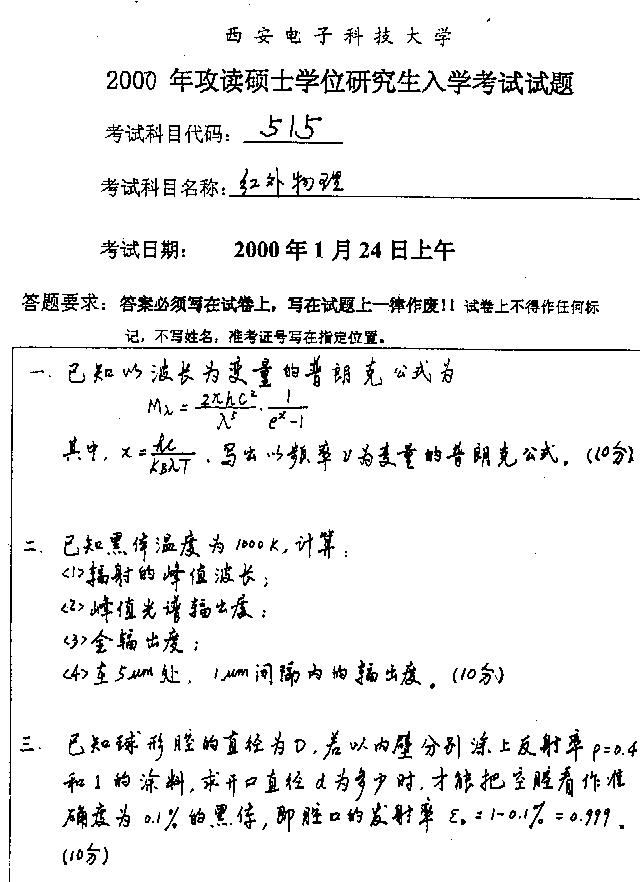 西安电子科技大学
2000 年攻读硕士学位研究生入学考试试题
考试科目代码: 515
考试科目名称: 红外物理
考试日期: 2000 年 1 月 24 日上午
答题要求: 答案必须写在试卷上，写在试题上一律作废!! 试卷上不得作任何标
记，不写姓名，准考证号写在指定位置。
一. 已知以波长为变量的普朗克公式为
Mλ = 2πhc²/λ⁵ · 1/(eˣ-1)
其中, x = hc/(K_BλT) . 写出以频率ν为变量的普朗克公式. (10分)
二. 已知黑体温度为1000K, 计算:
<1>辐射的峰值波长;
<2>峰值光谱辐出度;
<3>全辐出度;
<4>在5μm处, 1μm间隔内的辐出度. (10分)
三. 已知球形腔的直径为D, 若以内壁分别涂上反射率ρ=0.4
和1的涂料, 求开口直径d为多少时, 才能把空腔看作准
确度为0.1%的黑体, 即腔口的发射率 ε₀=1-0.1%=0.999 .
(10分)